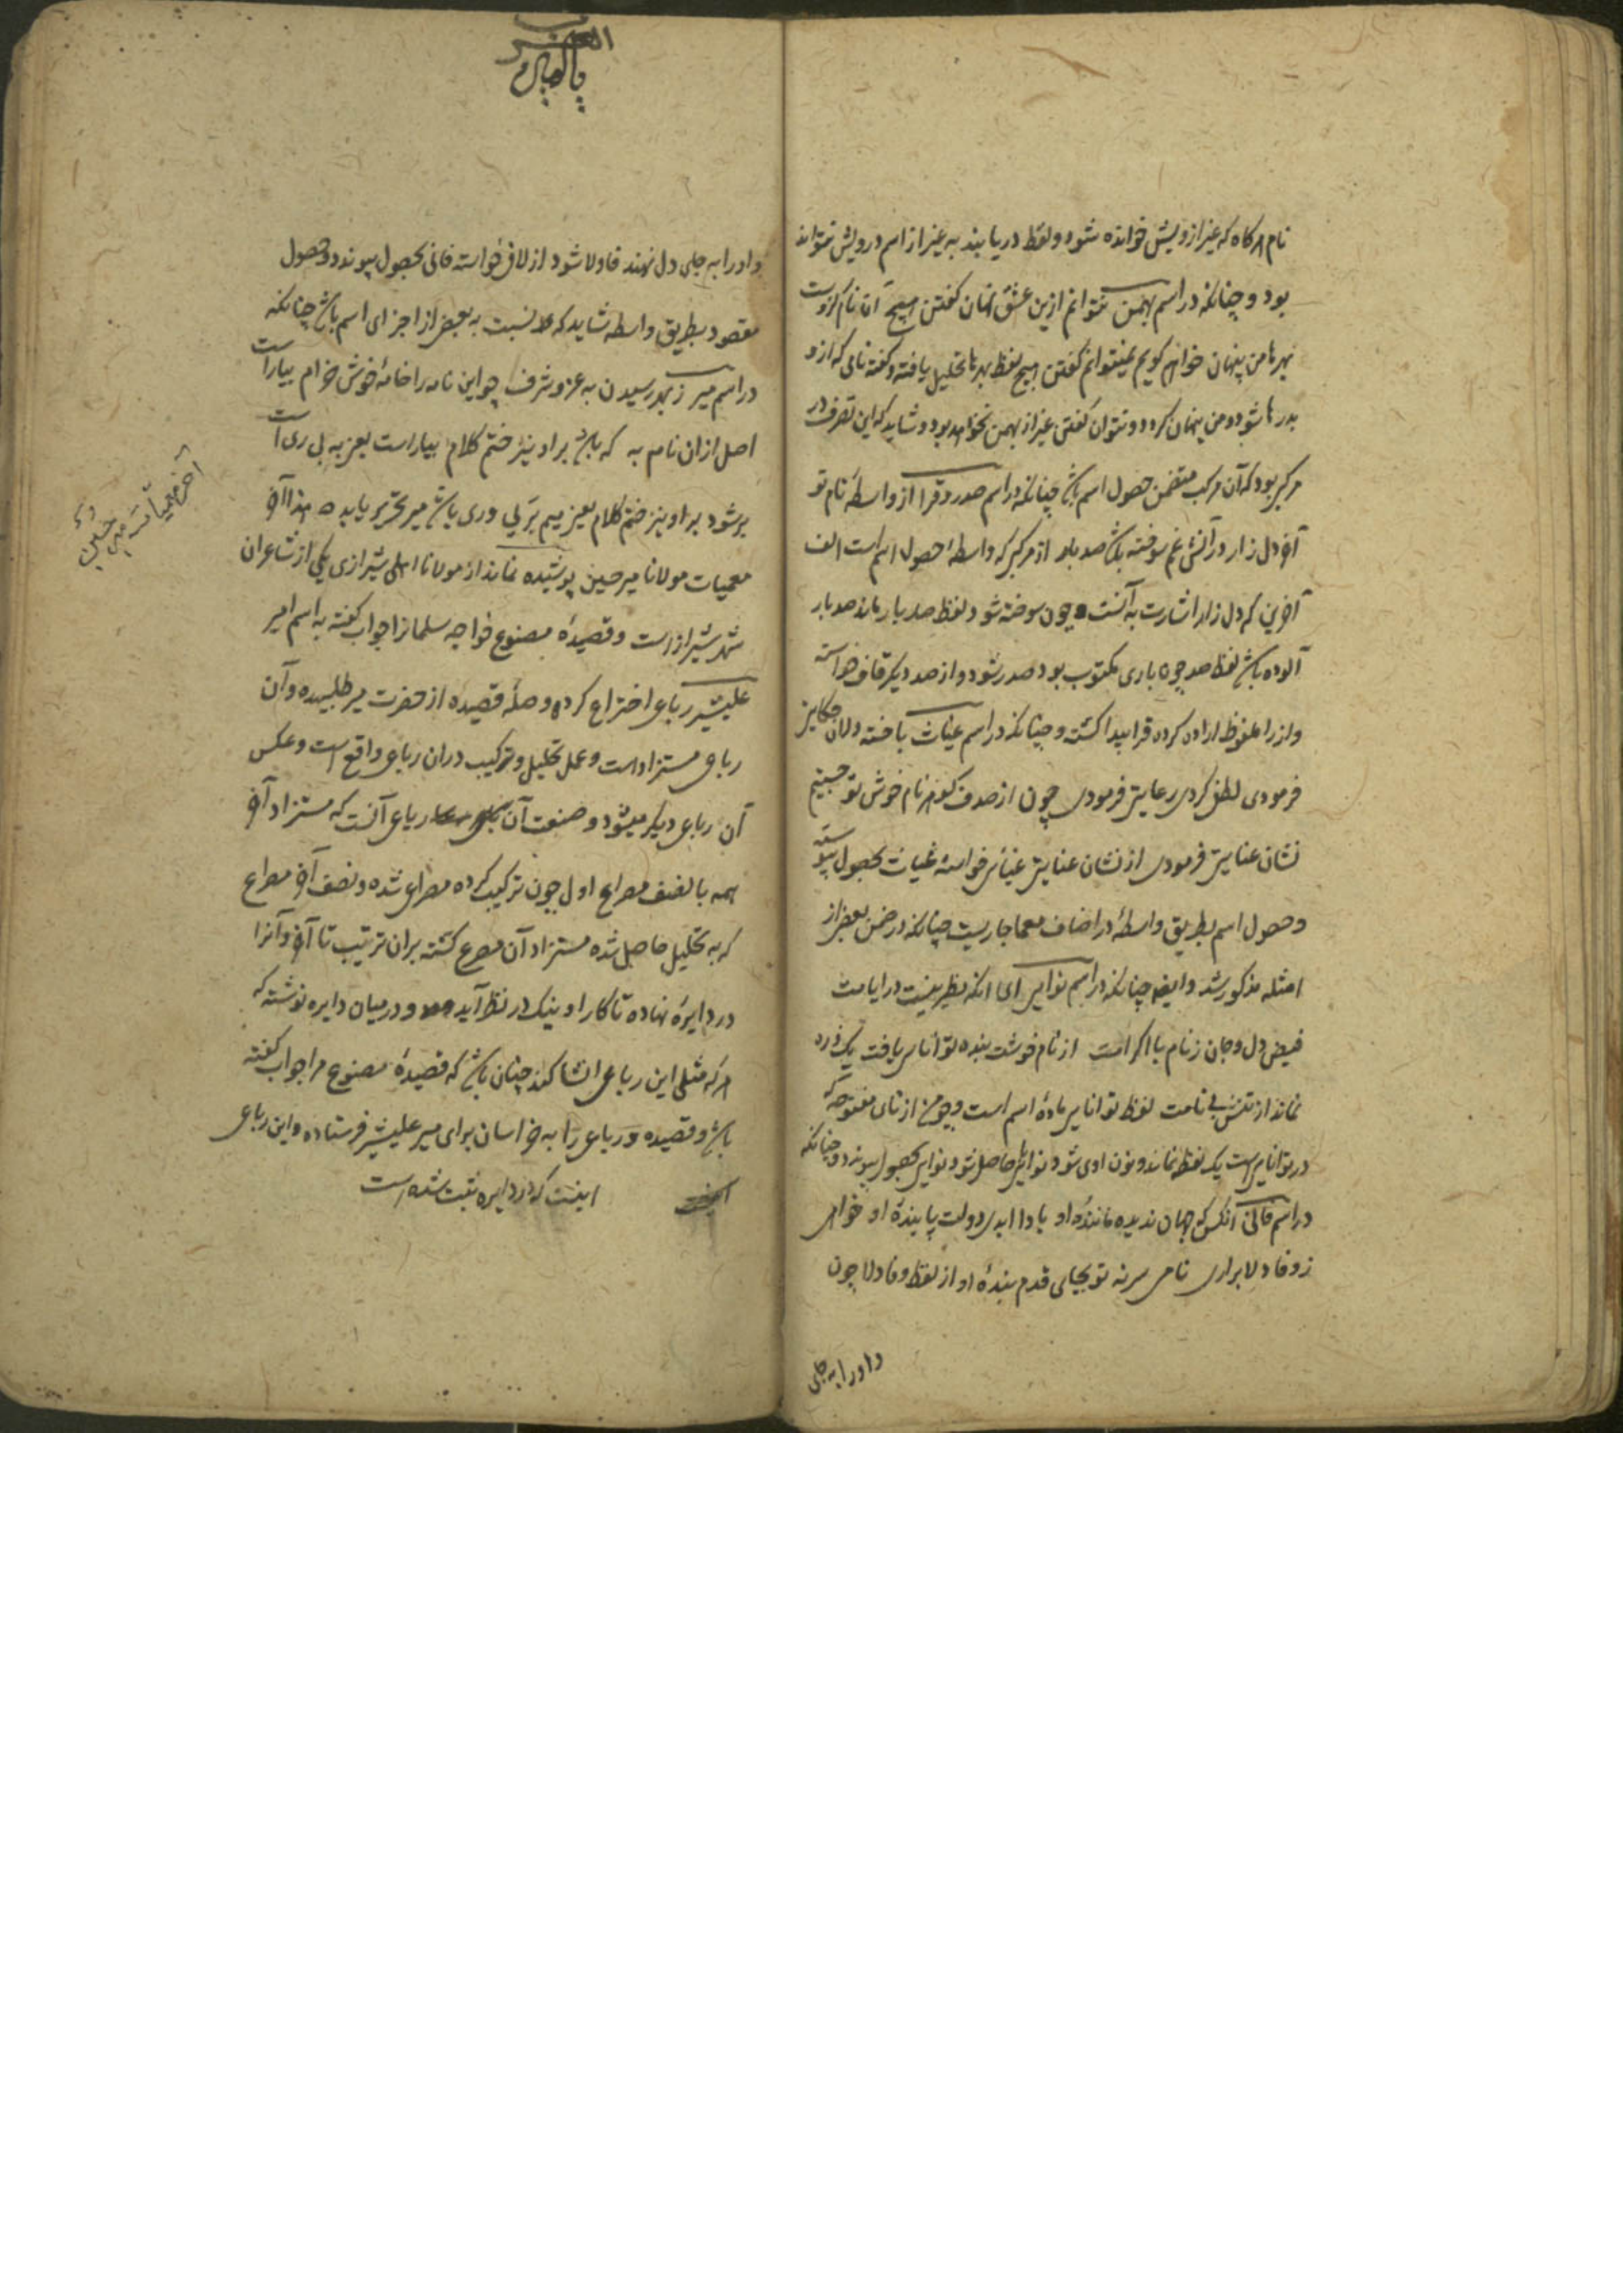 نام هرکاه که غیر از ویش خوانده شود و لفظ دریابند به غیر از اسم درویش نتواند
بود و چنانکه در اسم بهمن نتوانم ازین عشق نهان کفتن هیچ
من پنهان خواهم کویم نمیتوانم کفتن هیچ لفظ بهرها تحلیل یافته و کفته نامی که ازو
شود و من پنهان کردد و نتوان کفتن غیر از بهمن نخواهد بود و شاید که این تصرف در
مرکبی بود که آن مرکب متضمن حصول اسم باشد چنانکه در اسم صدر و قرا از واسطهٔ نام تو
آن دل زار در آتش غم سوخته باشد صد بار از مرکبی که واسطهٔ حصول اسم است الف
آخرین که دل زار اشارت به آنست چون سوخته شود لفظ صد بار ماند صد بار
آلوده باشد لفظ صد چون باری مکتوب بود صدر شود و از صد دیکر قاف خواسته
و از را ملفوظ اراده کرده قرا پیدا کشته و چنانکه در اسم غیاث
فرمودی لطف کردی رعایتی فرمودی چون از صدف نام خوش تو جستیم
نشان عنایتی فرمودی از نشان عنایتی خواسته غیاث بحصول پیوسته
و حصول اسم بطریق واسطه در اصناف معما جاریست چنانکه در ضمن بعضی از
امثله مذکور شد و ایضا چنانکه در اسم نوایی ای آنکه نظیر نیست در ایامت
فیض دل و جان ز نام با اکرامت از نام خوشت بنده توانایی یافت یک ذره
نماند از تنش بی نامت لفظ توانایی مادهٔ اسم است و چون از تای مفتوحه که
در توانایی است یک نقطه نماند و نون شود نوایی حاصل شود نوایی بحصول پیوندد و چنانکه
در اسم فانی آنکس که جهان ندیده مانندهٔ او بادا ابدی دولت پایندهٔ او خواهی
ز وفا دلا براری نامی سر نه تو بجای قدم بندهٔ او از لفظ وفا دلا چون
واو را به جای
واو را به جای دل نهند فاولا شود از لا خواسته فانی بحصول پیوندد و حصول
مقصود بطریق واسطه شاید که نسبت به بعضی از اجزای اسم باشد چنانکه
در اسم میر ز بهر رسیدن به عز و شرف چو این نامه را خامهٔ خوش خرام بیاراست
اصل ازان نام به که باشد بر او نیز ختم کلام بیاراست یعنی به
بر شود بر او نیز ختم کلام یعنی میم وری باشد میر تحریر یابد هذا آخر
معمیات مولانا میر حسین پوشیده نماند از مولانا اهلی شیرازی یکی از شاعران
شهر شیراز است و قصیدهٔ مصنوع خواجه سلمان را جواب کفته به اسم امیر
علیشیر رباعی اختراع کرده و صلهٔ قصیده از حضرت میر طلبیده و آن
رباعی مستزاد است و عمل تحلیل و ترکیب دران رباعی واقع است و عکس
آن رباعی دیکر میشود و صنعت آن رباعی آنست که مستزاد آخر
همه با نصف مصراع اول چون ترکیب کرده مصراعی شده و نصف آخر مصراع
که به تحلیل حاصل شده مستزاد آن مصرع کشته بران ترتیب تا آخر و آنرا
در دایرهٔ نهاده تا کار او نیک در نظر آید و در میان دایره نوشته که
هر که مثلی این رباعی انشا کند چنان باشد که قصیدهٔ مصنوع مرا جواب کفته
باشد و قصیده و رباعی را به خراسان برای میر علیشیر فرستاده و این رباعی
اینست که در دایره ثبت شده است
آخر معمیات میر حسین